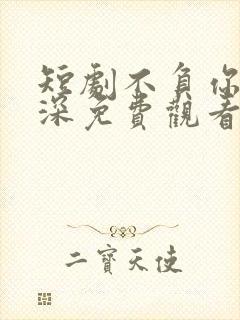 短劇不負你
深免費觀看
二寶天使